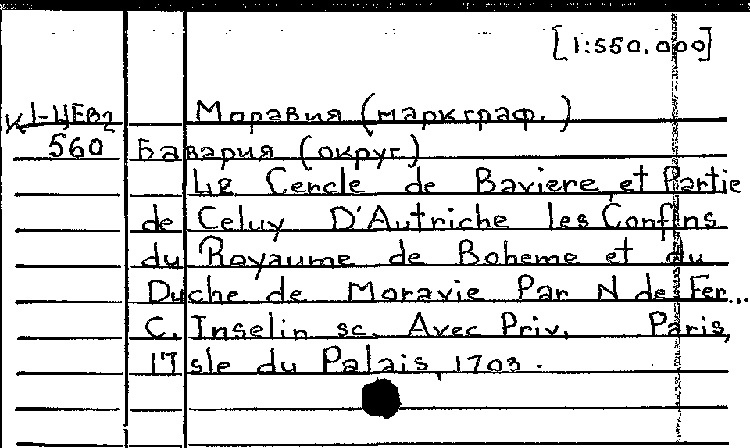 [1:550.000]
К 1-ЦЕв2 Моравия (маркграф.)
560 Бавария (округ)
Le Cercle de Baviere et Partie
de Celuy D'Autriche les Confins
du Royaume de Boheme et du
Duche de Moravie Par N de Fer...
C. Inselin sc. Avec Priv. Paris,
l'Isle du Palais, 1703.